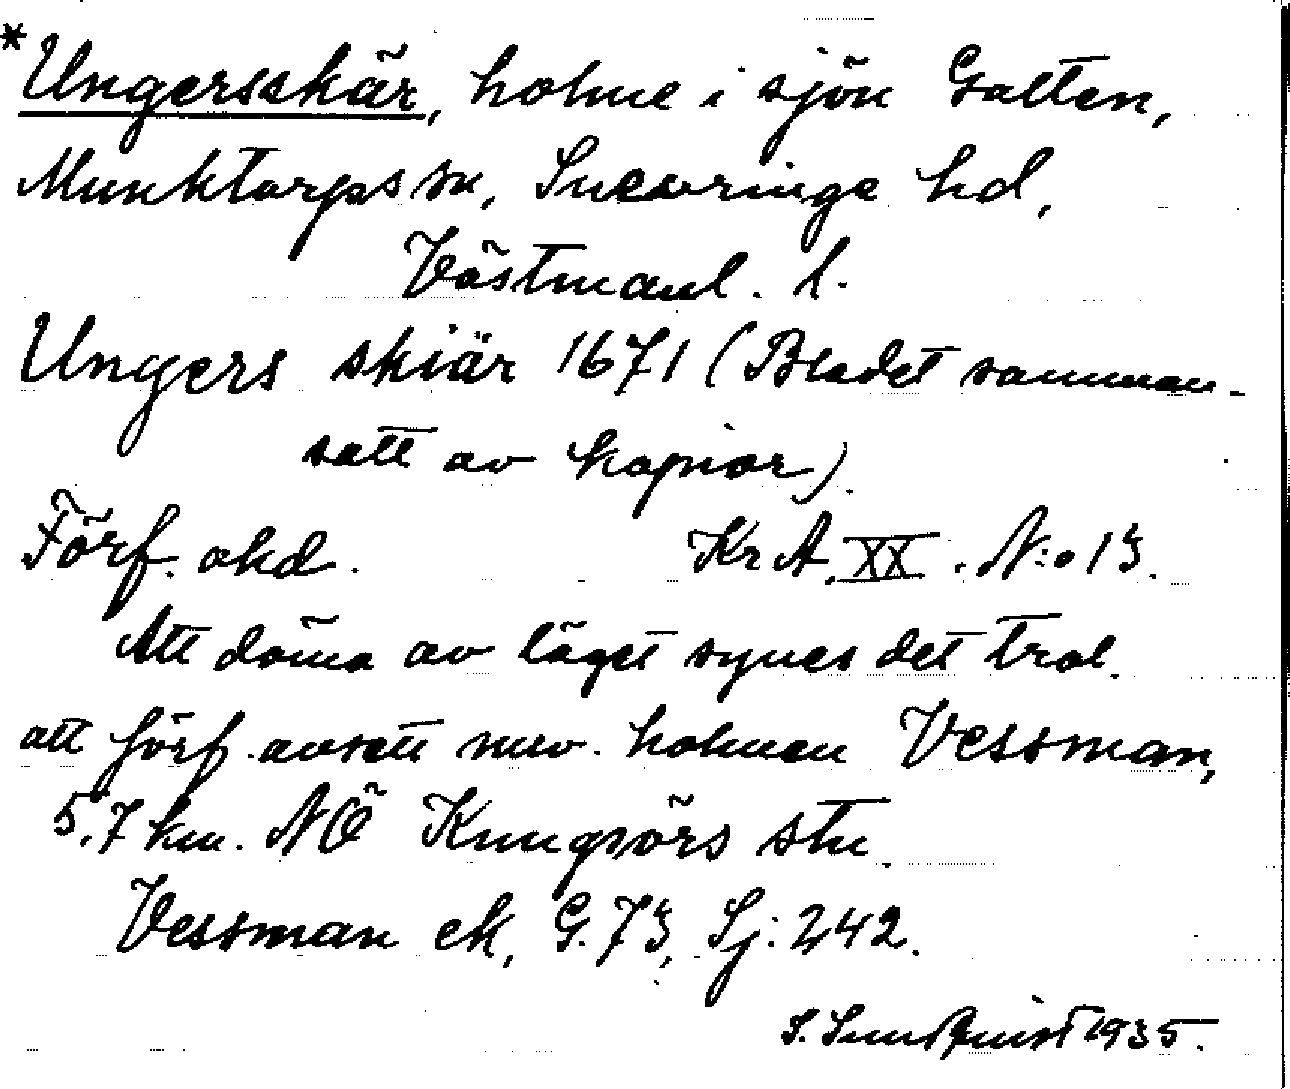 *Ungersskär, holme i sjön Galten,
Munktorps sn, Snevringe hd,
Västmanl. l.
Ungers skiär 1671 (Bladet samman-
satt av kopior).
Förf. okd. Kr A. XX. N:o 13.
Att döma av läget synes det trol.
att förf. avsett nuv. holmen Vessman,
5.7 km. NÖ Kungsörs stn.
Vessman ek, G. 73, Sj: 242.
S. Sundquist 1935.